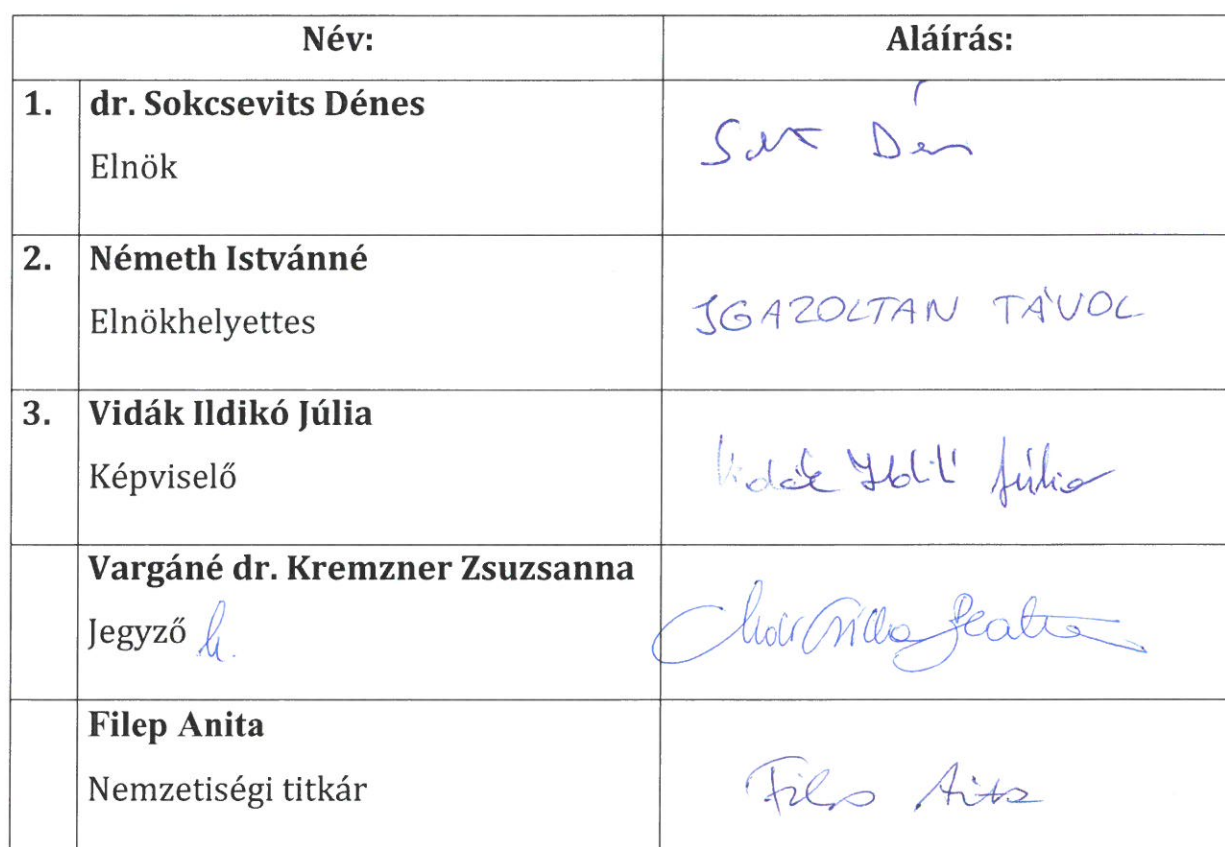 Név: Aláírás:
1. dr. Sokcsevits Dénes
Elnök
2. Németh Istvánné
Elnökhelyettes
IGAZOLTAN TÁVOL
3. Vidák Ildikó Júlia
Képviselő
Vidák Ildikó Júlia
Vargáné dr. Kremzner Zsuzsanna
Jegyző h.
Filep Anita
Nemzetiségi titkár
Filep Anita